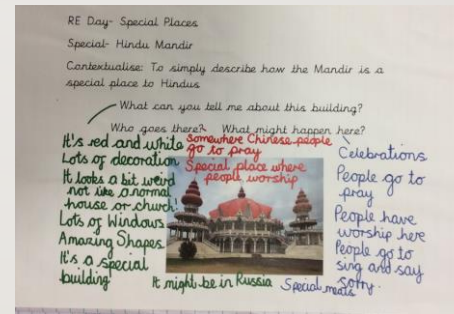 RE Day- Special Places
Special- Hindu Mandir
Contextualise: To simply describe how the Mandir is a
special place to Hindus
What can you tell me about this building?
Who goes there? What might happen here?
It's red and white
Lots of decoration
It looks a bit weird
not like a normal
house or church!
Lots of Windows
Amazing Shapes
It's a special
building
Somewhere Chinese people
go to pray
Special place where
people worship
It might be in Russia
Special meals
Celebrations
People go to
pray
People have
worship here
People go to
sing and say
sorry.